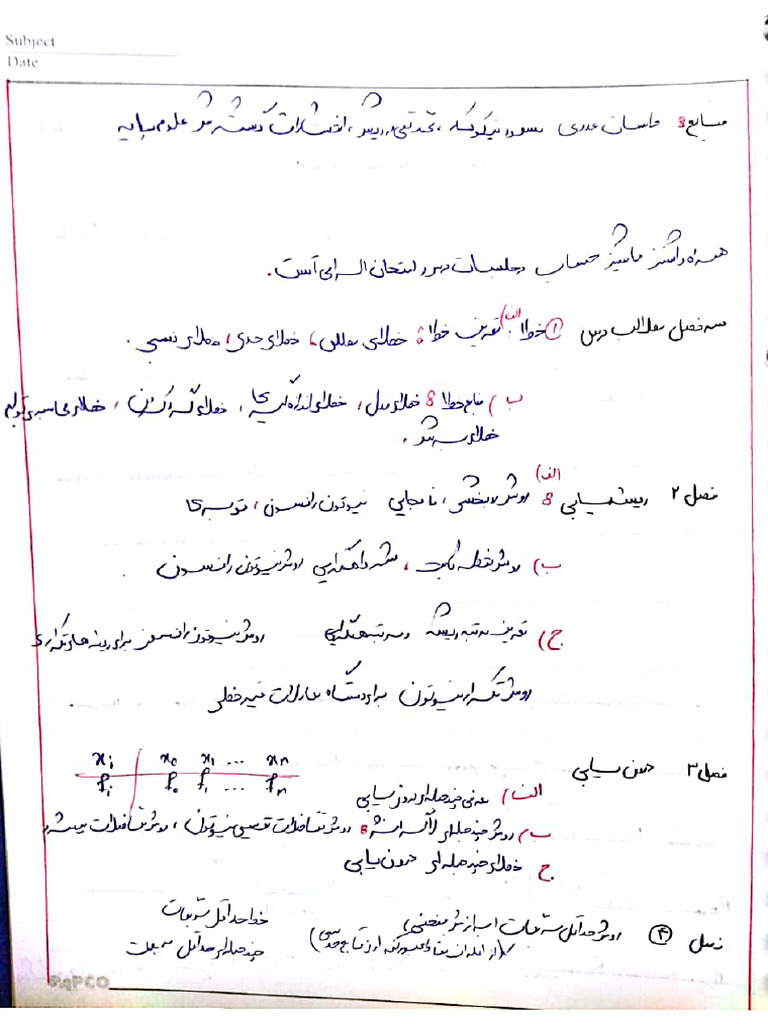 Subject
Date
منابع: محاسبات عددی مسعود نیکوکار، محمدتقی درویشی، انتشارات گسترش علوم پایه
همراه داشتن ماشین حساب در جلسات درس و امتحان الزامی است.
سه فصل مطالب درس ① خطا: الف) تعریف خطا: خطای مطلق، خطای حدی، خطای نسبی.
ب) منابع خطا: خطای مدل، خطای اندازه‌گیری، خطای گرد کردن، خطای محاسبه توابع
خطای برشی.
فصل ۲ ریشه‌یابی: الف) روش دوبخشی، نابجایی نیوتون رافسون، وتری
ب) روش نقطه ثابت، همگرایی روش نیوتون رافسون
ج) تعریف مرتبه ریشه و مرتبه همگرایی روش نیوتون رافسون برای ریشه های تکراری
روش تکرار نیوتون برای دستگاه معادلات غیر خطی
فصل ۳ درون یابی xᵢ x₀ x₁ ... xₙ
fᵢ f₀ f₁ ... fₙ
الف) معرفی چند جمله‌ای درون یابی
ب) روش چند جمله‌ای لاگرانژ: روش تفاضلات تقسیمی نیوتون، روش تفاضلات پیشرو
ج) خطای چند جمله ای درون یابی
فصل ④ روش حداقل مربعات (برازش منحنی) خط حداقل مربعات
چند جمله‌ای حداقل مربعات
PaPCO